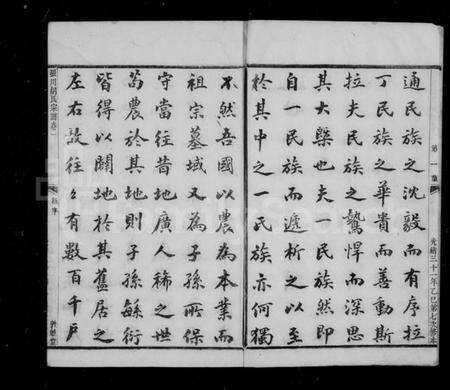 通民族之沈毅而有序拉
丁民族之華貴而善動斯
拉夫民族之鷙悍而深思
其大槩也夫一民族然即
自一民族而遞析之以至
於其中之一民族亦何獨
不然吾國以農為本業而
祖宗墓域又為子孫所保
守當往昔地廣人稀之世
苟農於其地則子孫蘇衍
皆得以闢地於其舊居之
左右故往々有數百千戶
第一集
光緒三十一年乙巳第七次修本